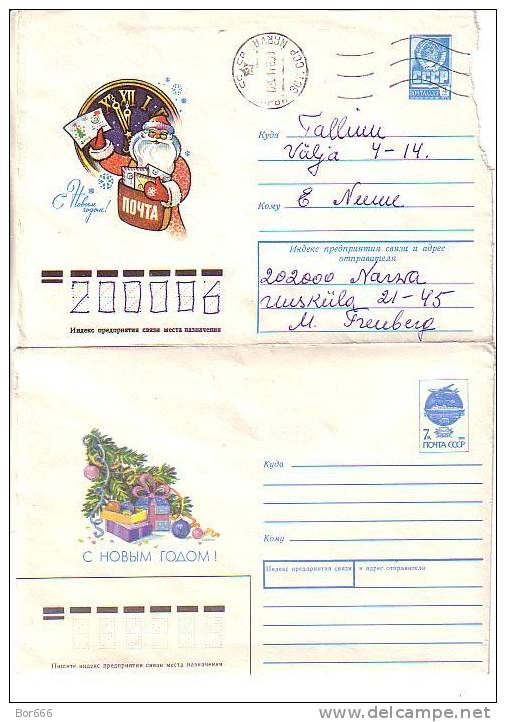 XII I
СССР
Куда Tallinn
Välja 4-14.
Кому E Numme
С Новым годом!
ПОЧТА
Индекс предприятия связи и адрес отправителя
202000 Narva
Uusküla 21-45
M. Frenberg
200006
Индекс предприятия связи места назначения
7к
ПОЧТА СССР
Куда
Кому
С НОВЫМ ГОДОМ!
Индекс предприятия связи и адрес отправителя
Пишите индекс предприятия связи места назначения
Bor666
delcampe.net